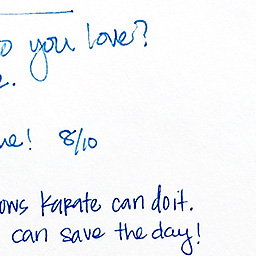 you love?
! 8/10
karate can do it.
can save the day!